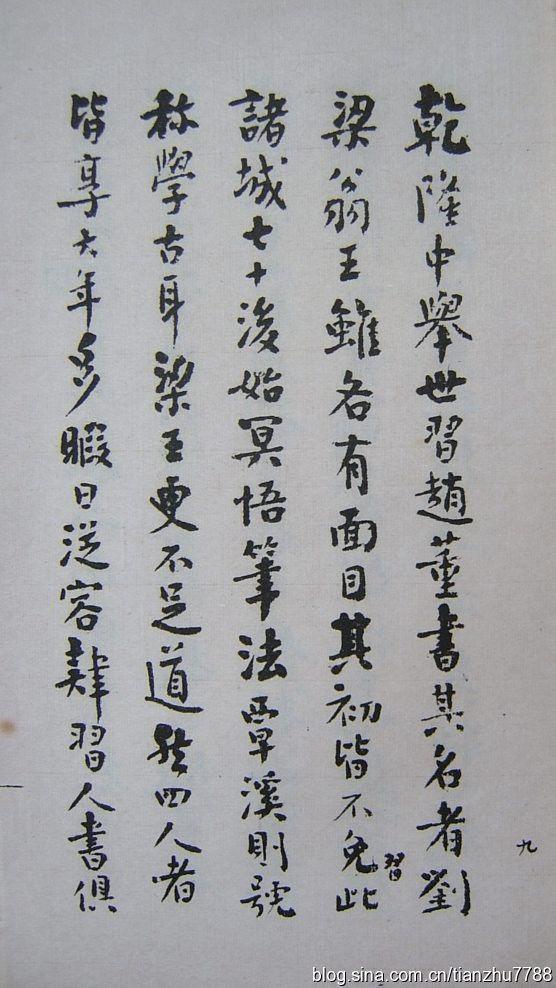 乾隆中舉世習趙董書其名者劉
梁翁王雖各有面目其初皆不免此
習
諸城七十後始冥悟筆法覃溪則號
称學古耳梁王更不足道然四人者
皆享大年多暇日從容肄習人書俱
九
blog.sina.com.cn/tianzhu7788